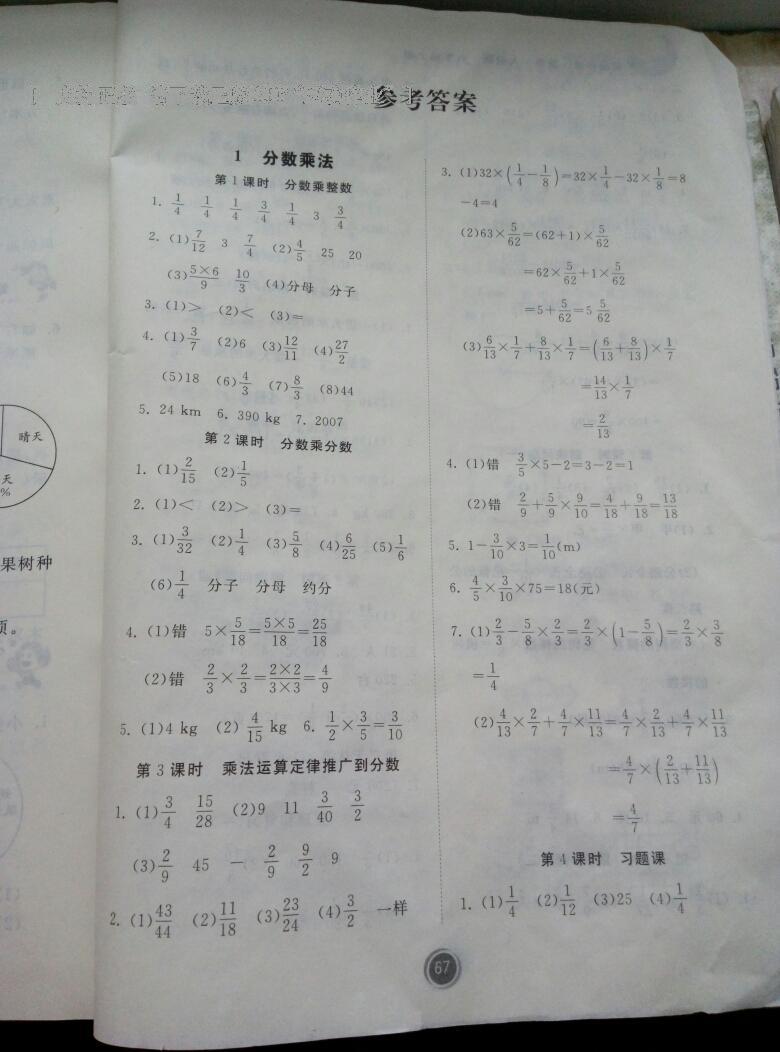 参考答案
1 分数乘法
第1课时 分数乘整数
1. 1/4 1/4 1/4 3/4 1/4 3 3/4
2. (1)7/12 3 7/4 (2)4/5 25 20
(3)5×6/9 10/3 (4)分母 分子
3. (1)> (2)< (3)=
4. (1)3/7 (2)6 (3)12/11 (4)27/2
(5)18 (6)4/3 (7)8/3 (8)44
5. 24 km 6. 390 kg 7. 2007
第2课时 分数乘分数
1. (1)2/15 (2)1/5
2. (1)< (2)> (3)=
3. (1)3/32 (2)1/4 (3)5/8 (4)6/25 (5)1/6
(6)1/4 分子 分母 约分
4. (1)错 5×5/18=5×5/18=25/18
(2)错 2/3×2/3=2×2/3×3=4/9
5. (1)4 kg (2)4/15 kg 6. 1/2×3/5=3/10
第3课时 乘法运算定律推广到分数
1. (1)3/4 15/28 (2)9 11 3/40 3/2
(3)2/9 45 - 2/9 9/2 9
2. (1)43/44 (2)11/18 (3)23/24 (4)3/2 一样
3. (1)32×(1/4-1/8)=32×1/4-32×1/8=8
-4=4
(2)63×5/62=(62+1)×5/62
=62×5/62+1×5/62
=5+5/62=5 5/62
(3)6/13×1/7+8/13×1/7=(6/13+8/13)×1/7
=14/13×1/7
=2/13
4. (1)错 3/5×5-2=3-2=1
(2)错 2/9+5/9×9/10=4/18+9/18=13/18
5. 1-3/10×3=1/10(m)
6. 4/5×3/10×75=18(元)
7. (1)2/3-5/8×2/3=2/3×(1-5/8)=2/3×3/8
=1/4
(2)4/13×2/7+4/7×11/13=4/7×2/13+4/7×11/13
=4/7×(2/13+11/13)
=4/7
第4课时 习题课
1. (1)1/4 (2)1/12 (3)25 (4)1/4
67
晴天
天
%
果树种